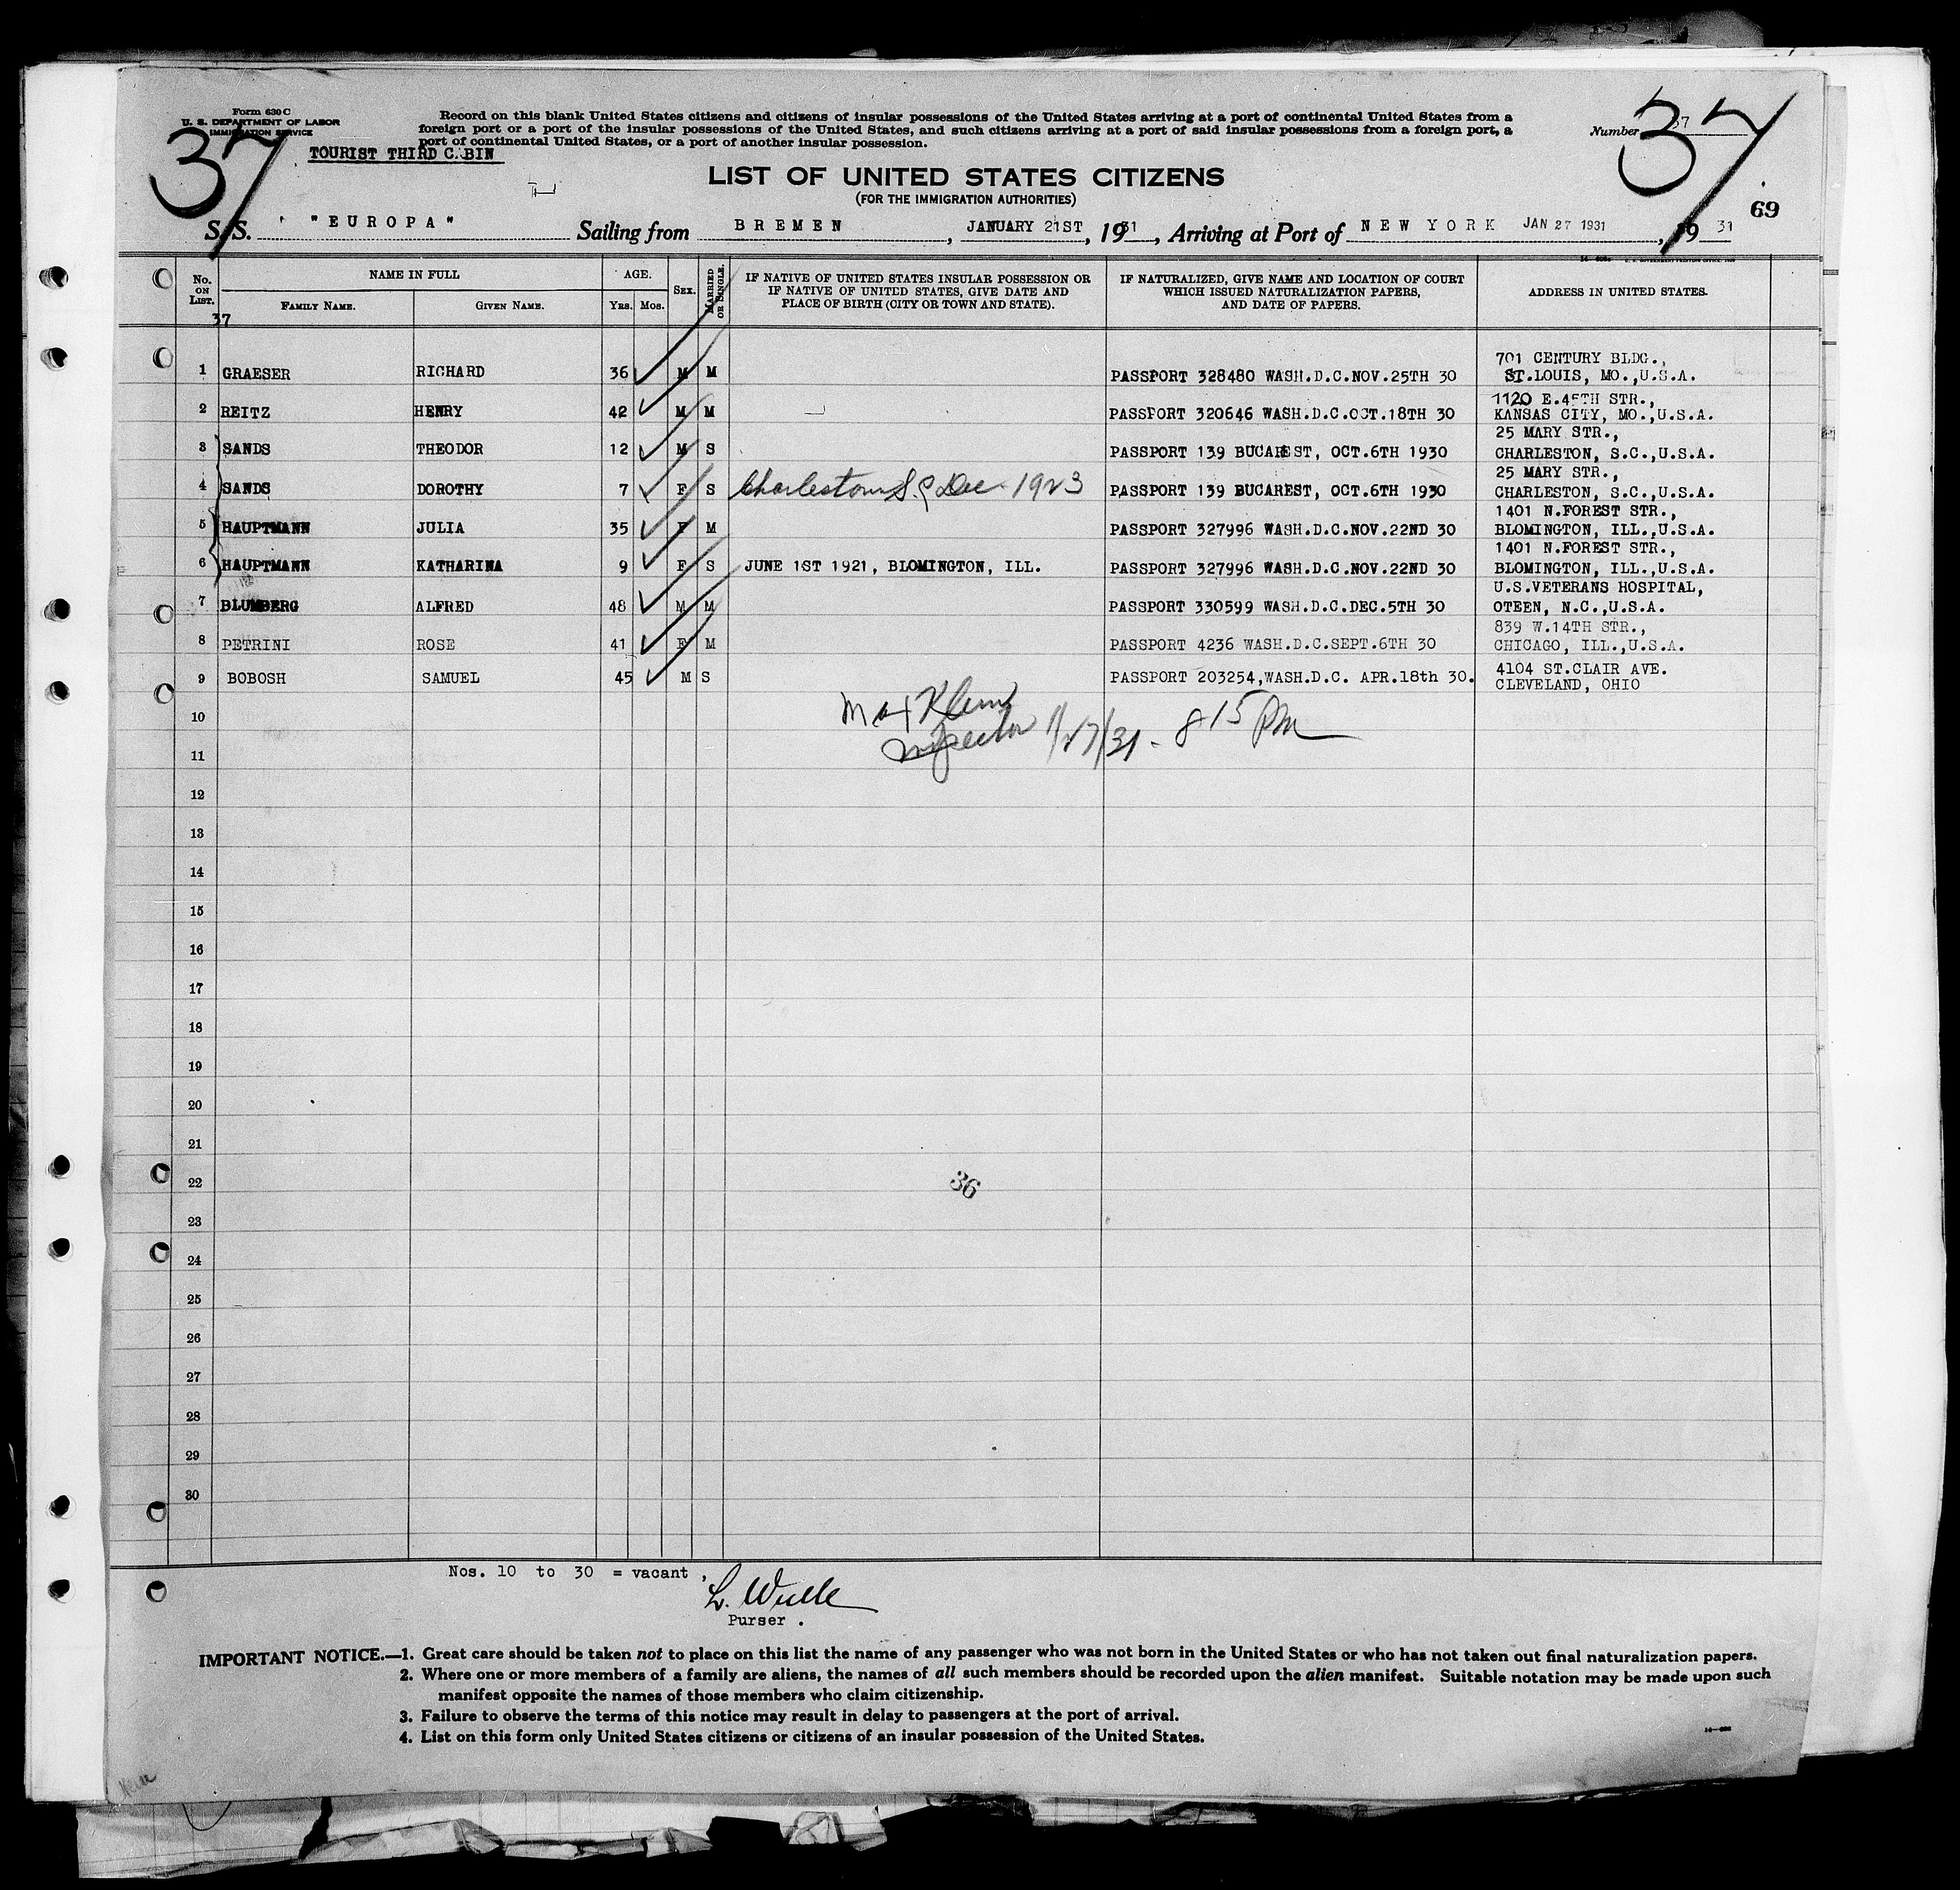 Form 630 C
U. S. DEPARTMENT OF LABOR
IMMIGRATION SERVICE
Record on this blank United States citizens and citizens of insular possessions of the United States arriving at a port of continental United States from a
foreign port or a port of the insular possessions of the United States, and such citizens arriving at a port of said insular possessions from a foreign port, a
port of continental United States, or a port of another insular possession.
Number 37
37
37
TOURIST THIRD C.BIN
LIST OF UNITED STATES CITIZENS
(FOR THE IMMIGRATION AUTHORITIES)
69
S. S. "EUROPA" Sailing from BREMEN, JANUARY 21ST, 1931, Arriving at Port of NEW YORK JAN 27 1931, 1931
No. ON LIST. NAME IN FULL AGE. SEX. MARRIED OR SINGLE. IF NATIVE OF UNITED STATES INSULAR POSSESSION OR IF NATIVE OF UNITED STATES, GIVE DATE AND PLACE OF BIRTH (CITY OR TOWN AND STATE). IF NATURALIZED, GIVE NAME AND LOCATION OF COURT WHICH ISSUED NATURALIZATION PAPERS, AND DATE OF PAPERS. ADDRESS IN UNITED STATES.
FAMILY NAME. GIVEN NAME. Yrs. Mos.
37
1 GRAESER RICHARD 36 M M PASSPORT 328480 WASH.D.C.NOV.25TH 30 701 CENTURY BLDG.,
ST.LOUIS, MO.,U.S.A.
2 REITZ HENRY 42 M M PASSPORT 320646 WASH.D.C.OCT.18TH 30 1120 E.45TH STR.,
KANSAS CITY, MO.,U.S.A.
3 SANDS THEODOR 12 M S PASSPORT 139 BUCAREST, OCT.6TH 1930 25 MARY STR.,
CHARLESTON, S.C.,U.S.A.
4 SANDS DOROTHY 7 F S Charleston S.C Dec 1923 PASSPORT 139 BUCAREST, OCT.6TH 1930 25 MARY STR.,
CHARLESTON, S.C.,U.S.A.
5 HAUPTMANN JULIA 35 F M PASSPORT 327996 WASH.D.C.NOV.22ND 30 1401 N.FOREST STR.,
BLOMINGTON, ILL.,U.S.A.
6 HAUPTMANN KATHARINA 9 F S JUNE 1ST 1921, BLOMINGTON, ILL. PASSPORT 327996 WASH.D.C.NOV.22ND 30 1401 N.FOREST STR.,
BLOMINGTON, ILL.,U.S.A.
7 BLUMBERG ALFRED 48 M M PASSPORT 330599 WASH.D.C.DEC.5TH 30 U.S.VETERANS HOSPITAL,
OTEEN, N.C.,U.S.A.
8 PETRINI ROSE 41 F M PASSPORT 4236 WASH.D.C.SEPT.6TH 30 839 W.14TH STR.,
CHICAGO, ILL.,U.S.A.
9 BOBOSH SAMUEL 45 M S PASSPORT 203254,WASH.D.C. APR.18th 30. 4104 ST.CLAIR AVE.
CLEVELAND, OHIO
10 Max Klein
11 Inspector 1/27/31 - 8 15 PM
12
13
14
15
16
17
18
19
20
21
22 36
23
24
25
26
27
28
29
30
Nos. 10 to 30 = vacant,
L. Wulle
Purser .
IMPORTANT NOTICE.—1. Great care should be taken not to place on this list the name of any passenger who was not born in the United States or who has not taken out final naturalization papers.
2. Where one or more members of a family are aliens, the names of all such members should be recorded upon the alien manifest. Suitable notation may be made upon such
manifest opposite the names of those members who claim citizenship.
3. Failure to observe the terms of this notice may result in delay to passengers at the port of arrival.
4. List on this form only United States citizens or citizens of an insular possession of the United States.